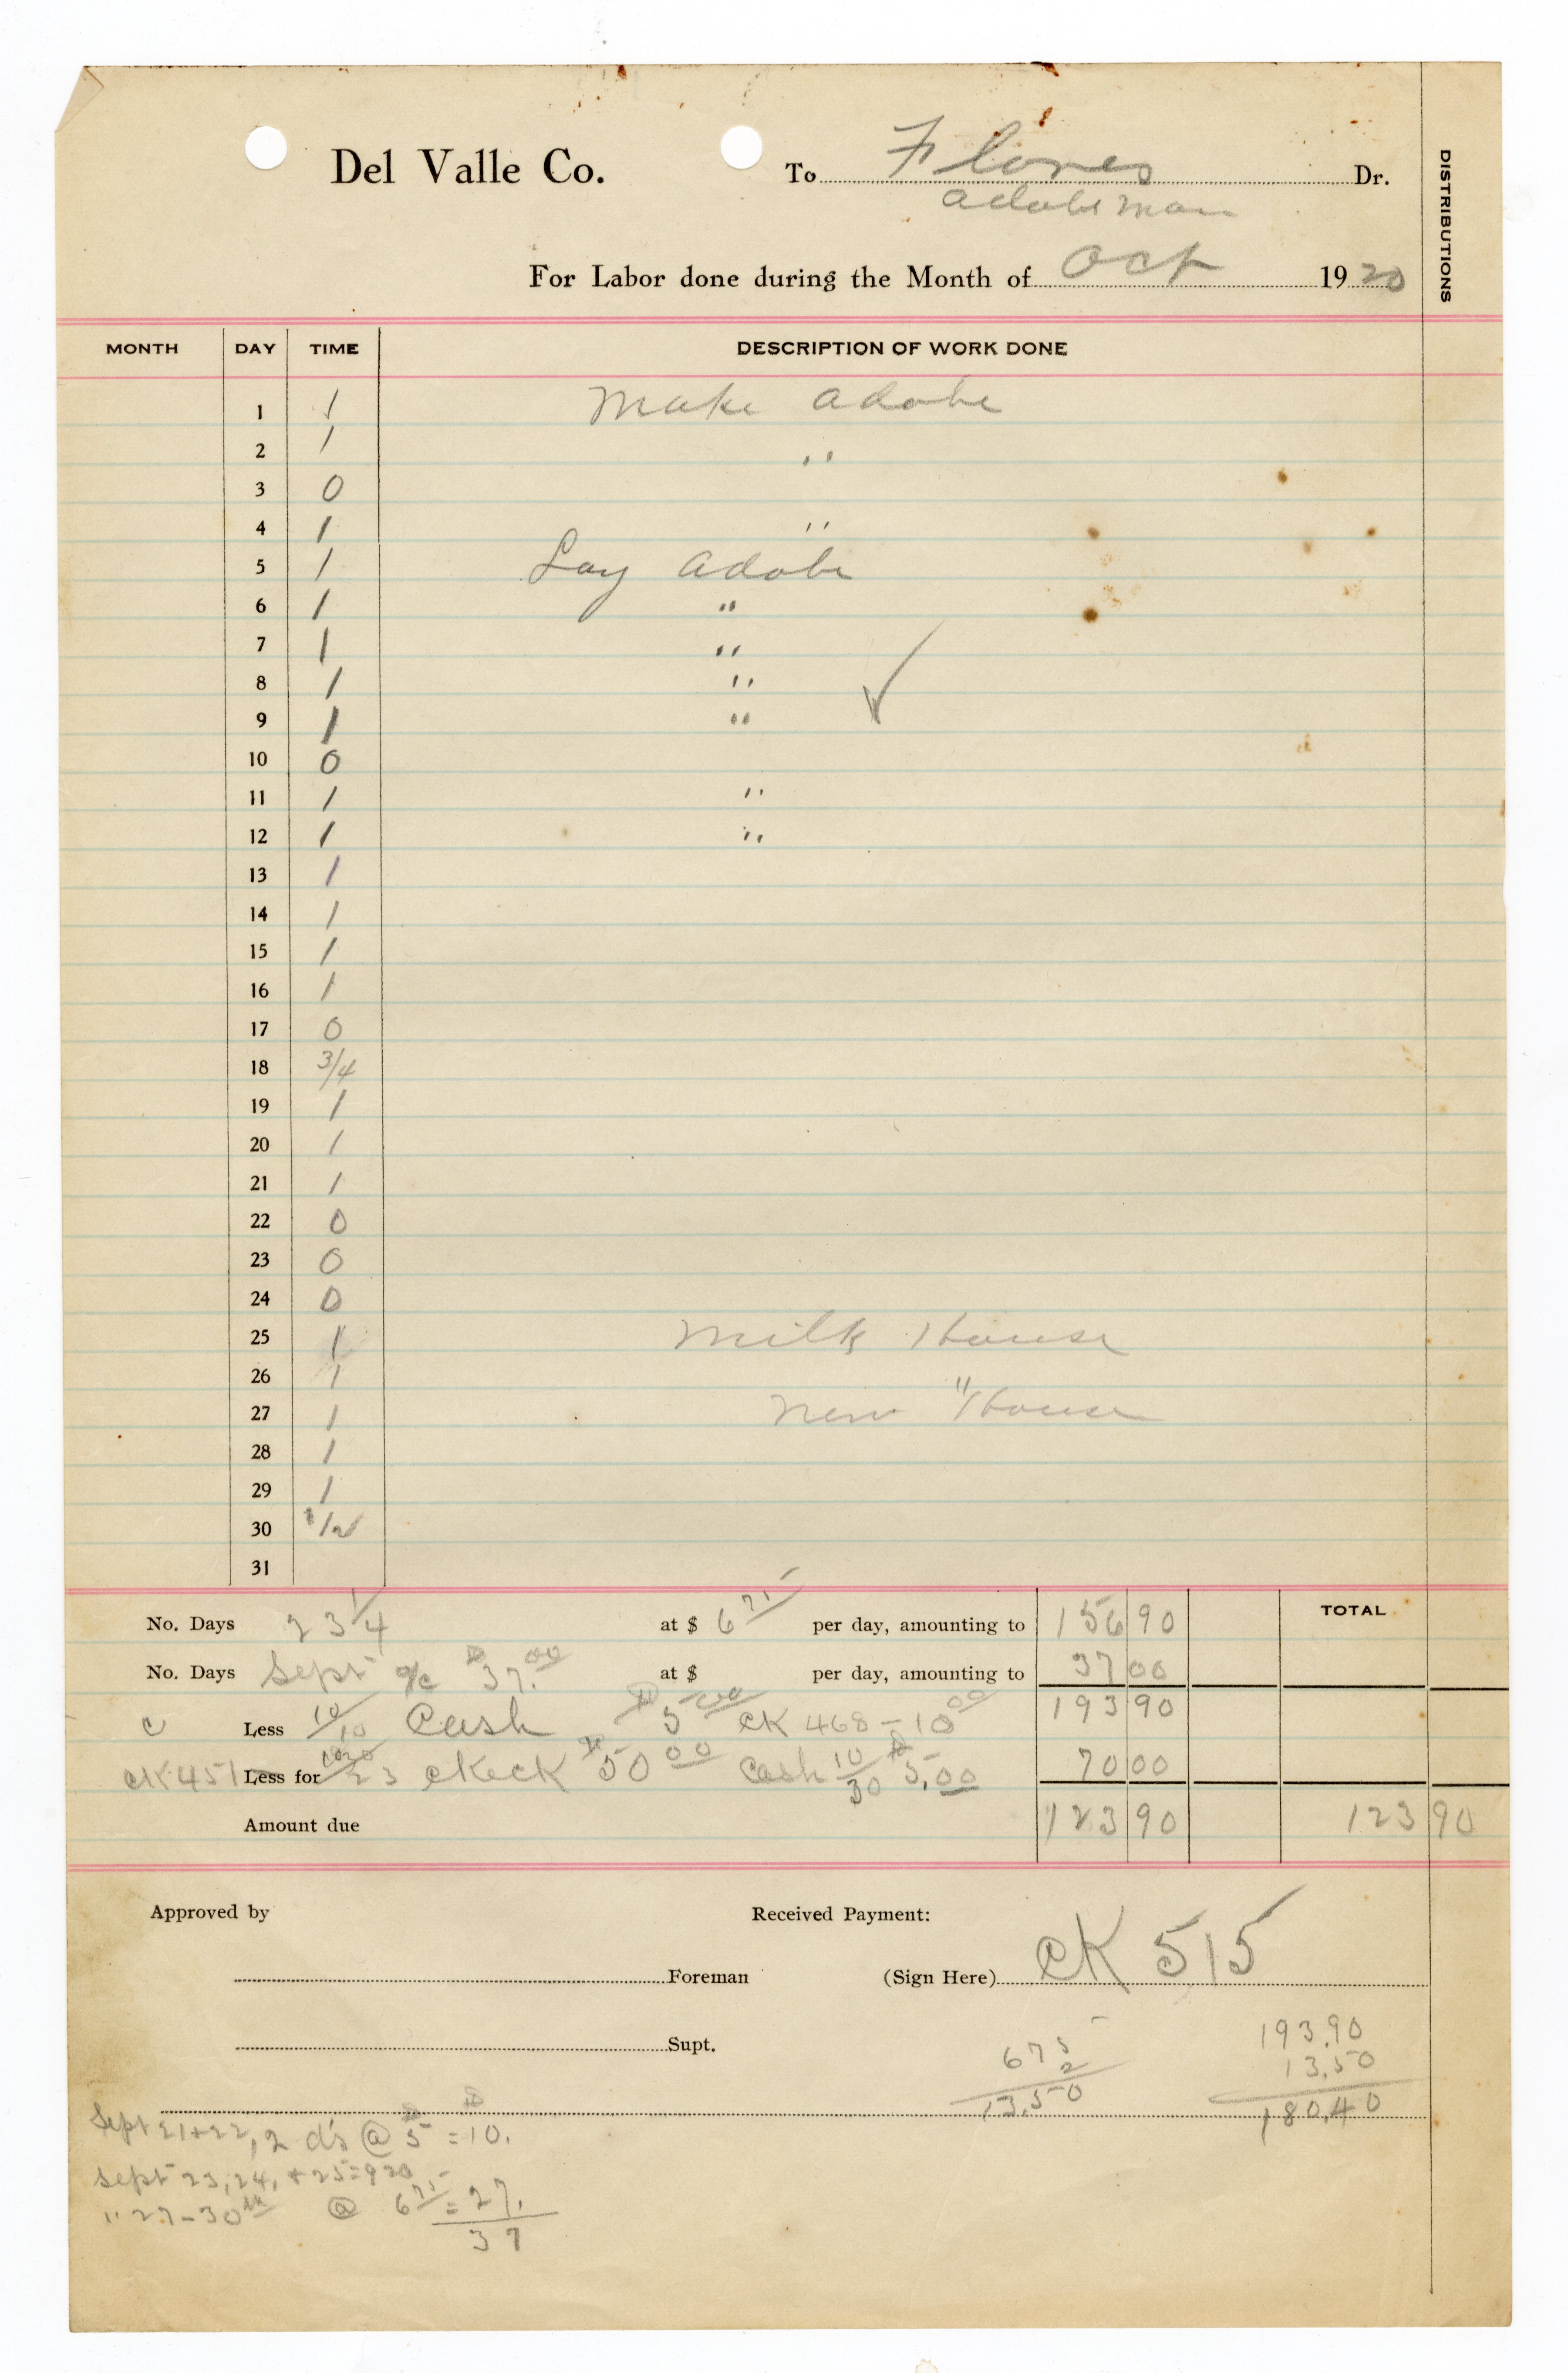 Del Valle Co. To Flores Dr.
adobe man
For Labor done during the Month of Oct 1920
DISTRIBUTIONS
MONTH DAY TIME DESCRIPTION OF WORK DONE
1 1 Make adobe
2 1 "
3 0
4 1 "
5 1 Lay adobe
6 1 "
7 1 "
8 1 " ✓
9 1 "
10 0
11 1 "
12 1 "
13 1
14 1
15 1
16 1
17 0
18 3/4
19 1
20 1
21 1
22 0
23 0
24 0
25 1 Milk House
26 1 "
27 1 New House
28 1
29 1
30 1/2
31
No. Days 23 1/4 at $ 6 75 per day, amounting to 156 90 TOTAL
No. Days Sept a/c $37.00 at $ per day, amounting to 37 00
193 90
c Less 10/10 Cash $5 00 CK 468 - 10 00
CK 451 Less for 23 check $50 00 Cash 10/30 $5.00 70 00
Amount due 123 90 123 90
Approved by Received Payment:
Foreman (Sign Here) CK 515
Supt.
675
2
13.50
193.90
13.50
180.40
Sept 21+22, 2 ds @ $5 = $10.
Sept 23, 24, + 25=
" 27-30th @ 6 75 = 27.
37